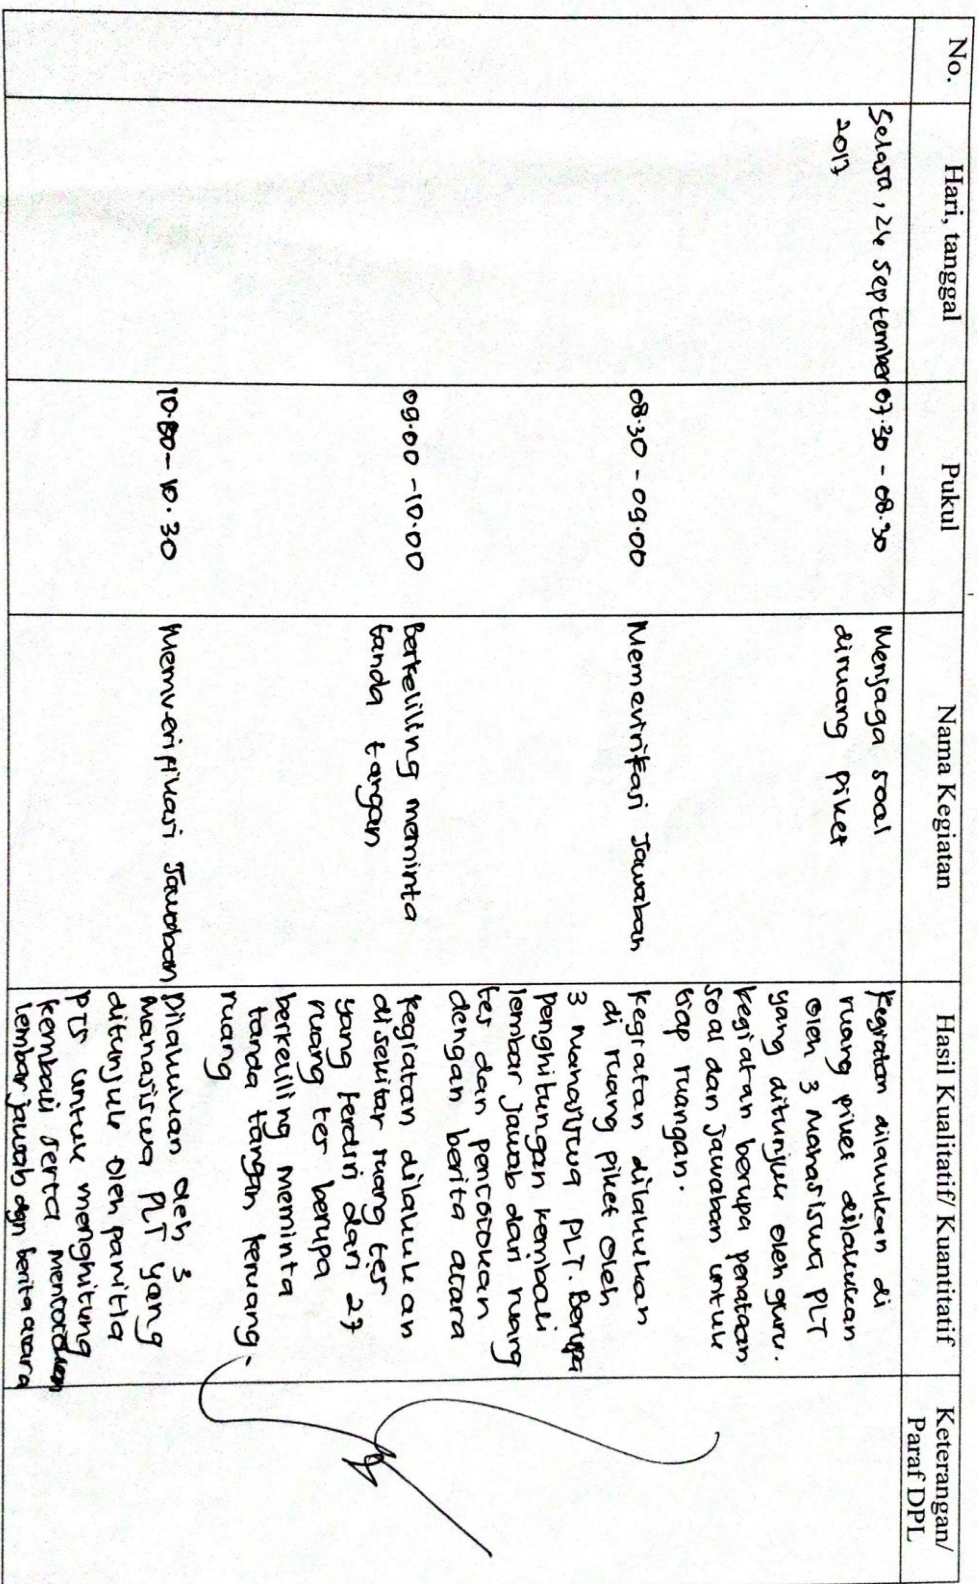 No.
Hari, tanggal
Pukul
Nama Kegiatan
Hasil Kualitatif/ Kuantitatif
Keterangan/
Paraf DPL
Selasa, 26 September
2017
07.30 - 08.30
Menjaga soal
diruang piket
Kegiatan dilakukan di
ruang piket dilakukan
oleh 3 mahasiswa PLT
yang ditunjuk oleh guru.
Kegiatan berupa penataan
soal dan jawaban untuk
tiap ruangan.
08.30 - 09.00
Memevirikasi Jawaban
Kegiatan dilakukan
di ruang piket oleh
3 mahasiswa PLT. Berupa
penghitungan kembali
lembar jawab dari ruang
tes dan pencocokan
dengan berita acara
09.00 - 10.00
Berkeliling meminta
tanda tangan
Kegiatan dilakukan
disekitar ruang tes
yang terdiri dari 27
ruang tes berupa
berkeliling meminta
tanda tangan keruang-
ruang
10.00 - 10.30
Memveripikasi Jawaban
Dilakukan oleh 3
Mahasiswa PLT yang
ditunjuk oleh panitia
PTS untuk menghitung
kembali serta mencocokan
lembar jawab dgn berita acara